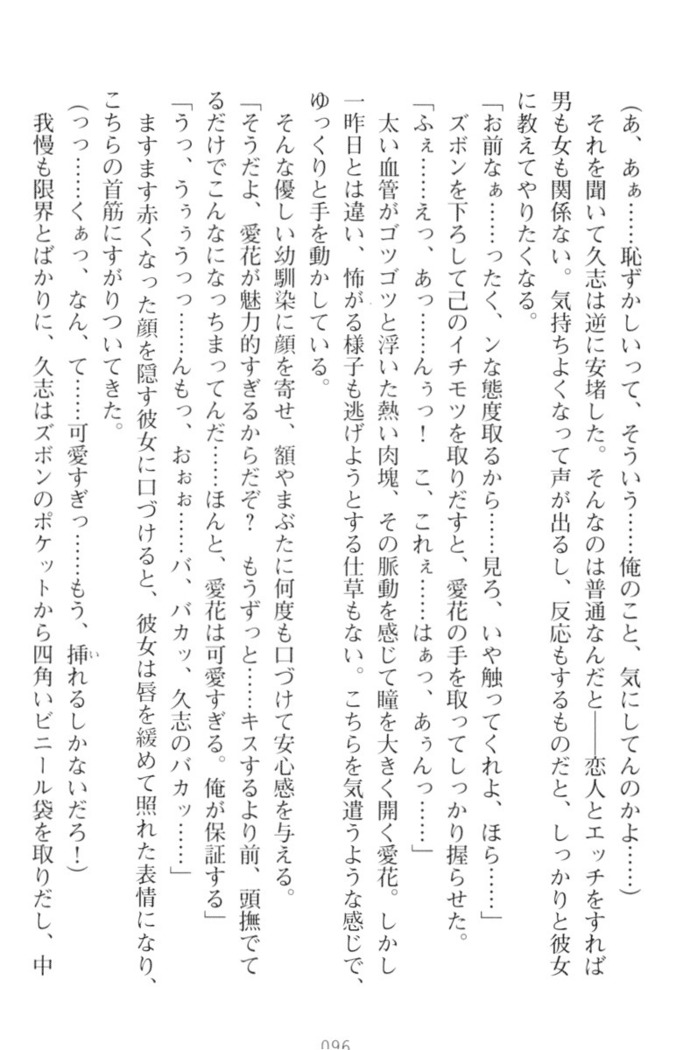 (あ、あぁ……恥ずかしいって、そういう……俺のこと、気にしてんのかよ……)
それを聞いて久志は逆に安堵した。そんなのは普通なんだと――恋人とエッチをすれば
男も女も関係ない。気持ちよくなって声が出るし、反応もするものだと、しっかりと彼女
に教えてやりたくなる。
「お前なぁ……ったく、ンな態度取るから……見ろ、いや触ってくれよ、ほら……」
ズボンを下ろして己のイチモツを取りだすと、愛花の手を取ってしっかり握らせた。
「ふぇ……えっ、あっ……んぅっ！　こ、これぇ……はぁっ、あぅんっ……」
太い血管がゴツゴツと浮いた熱い肉塊、その脈動を感じて瞳を大きく開く愛花。しかし
一昨日とは違い、怖がる様子も逃げようとする仕草もない。こちらを気遣うような感じで、
ゆっくりと手を動かしている。
そんな優しい幼馴染に顔を寄せ、額やまぶたに何度も口づけて安心感を与える。
「そうだよ、愛花が魅力的すぎるからだぞ？　もうずっと……キスするより前、頭撫でて
るだけでこんなになっちまってんだ……ほんと、愛花は可愛すぎる。俺が保証する」
「うっ、うぅぅうっっ……んもっ、おぉぉ……バ、バカッ、久志のバカッ……」
ますます赤くなった顔を隠す彼女に口づけると、彼女は唇を緩めて照れた表情になり、
こちらの首筋にすがりついてきた。
(っっ……くぁっ、なん、て……可愛すぎっ……もう、挿れるしかないだろ！)
我慢も限界とばかりに、久志はズボンのポケットから四角いビニール袋を取りだし、中
096